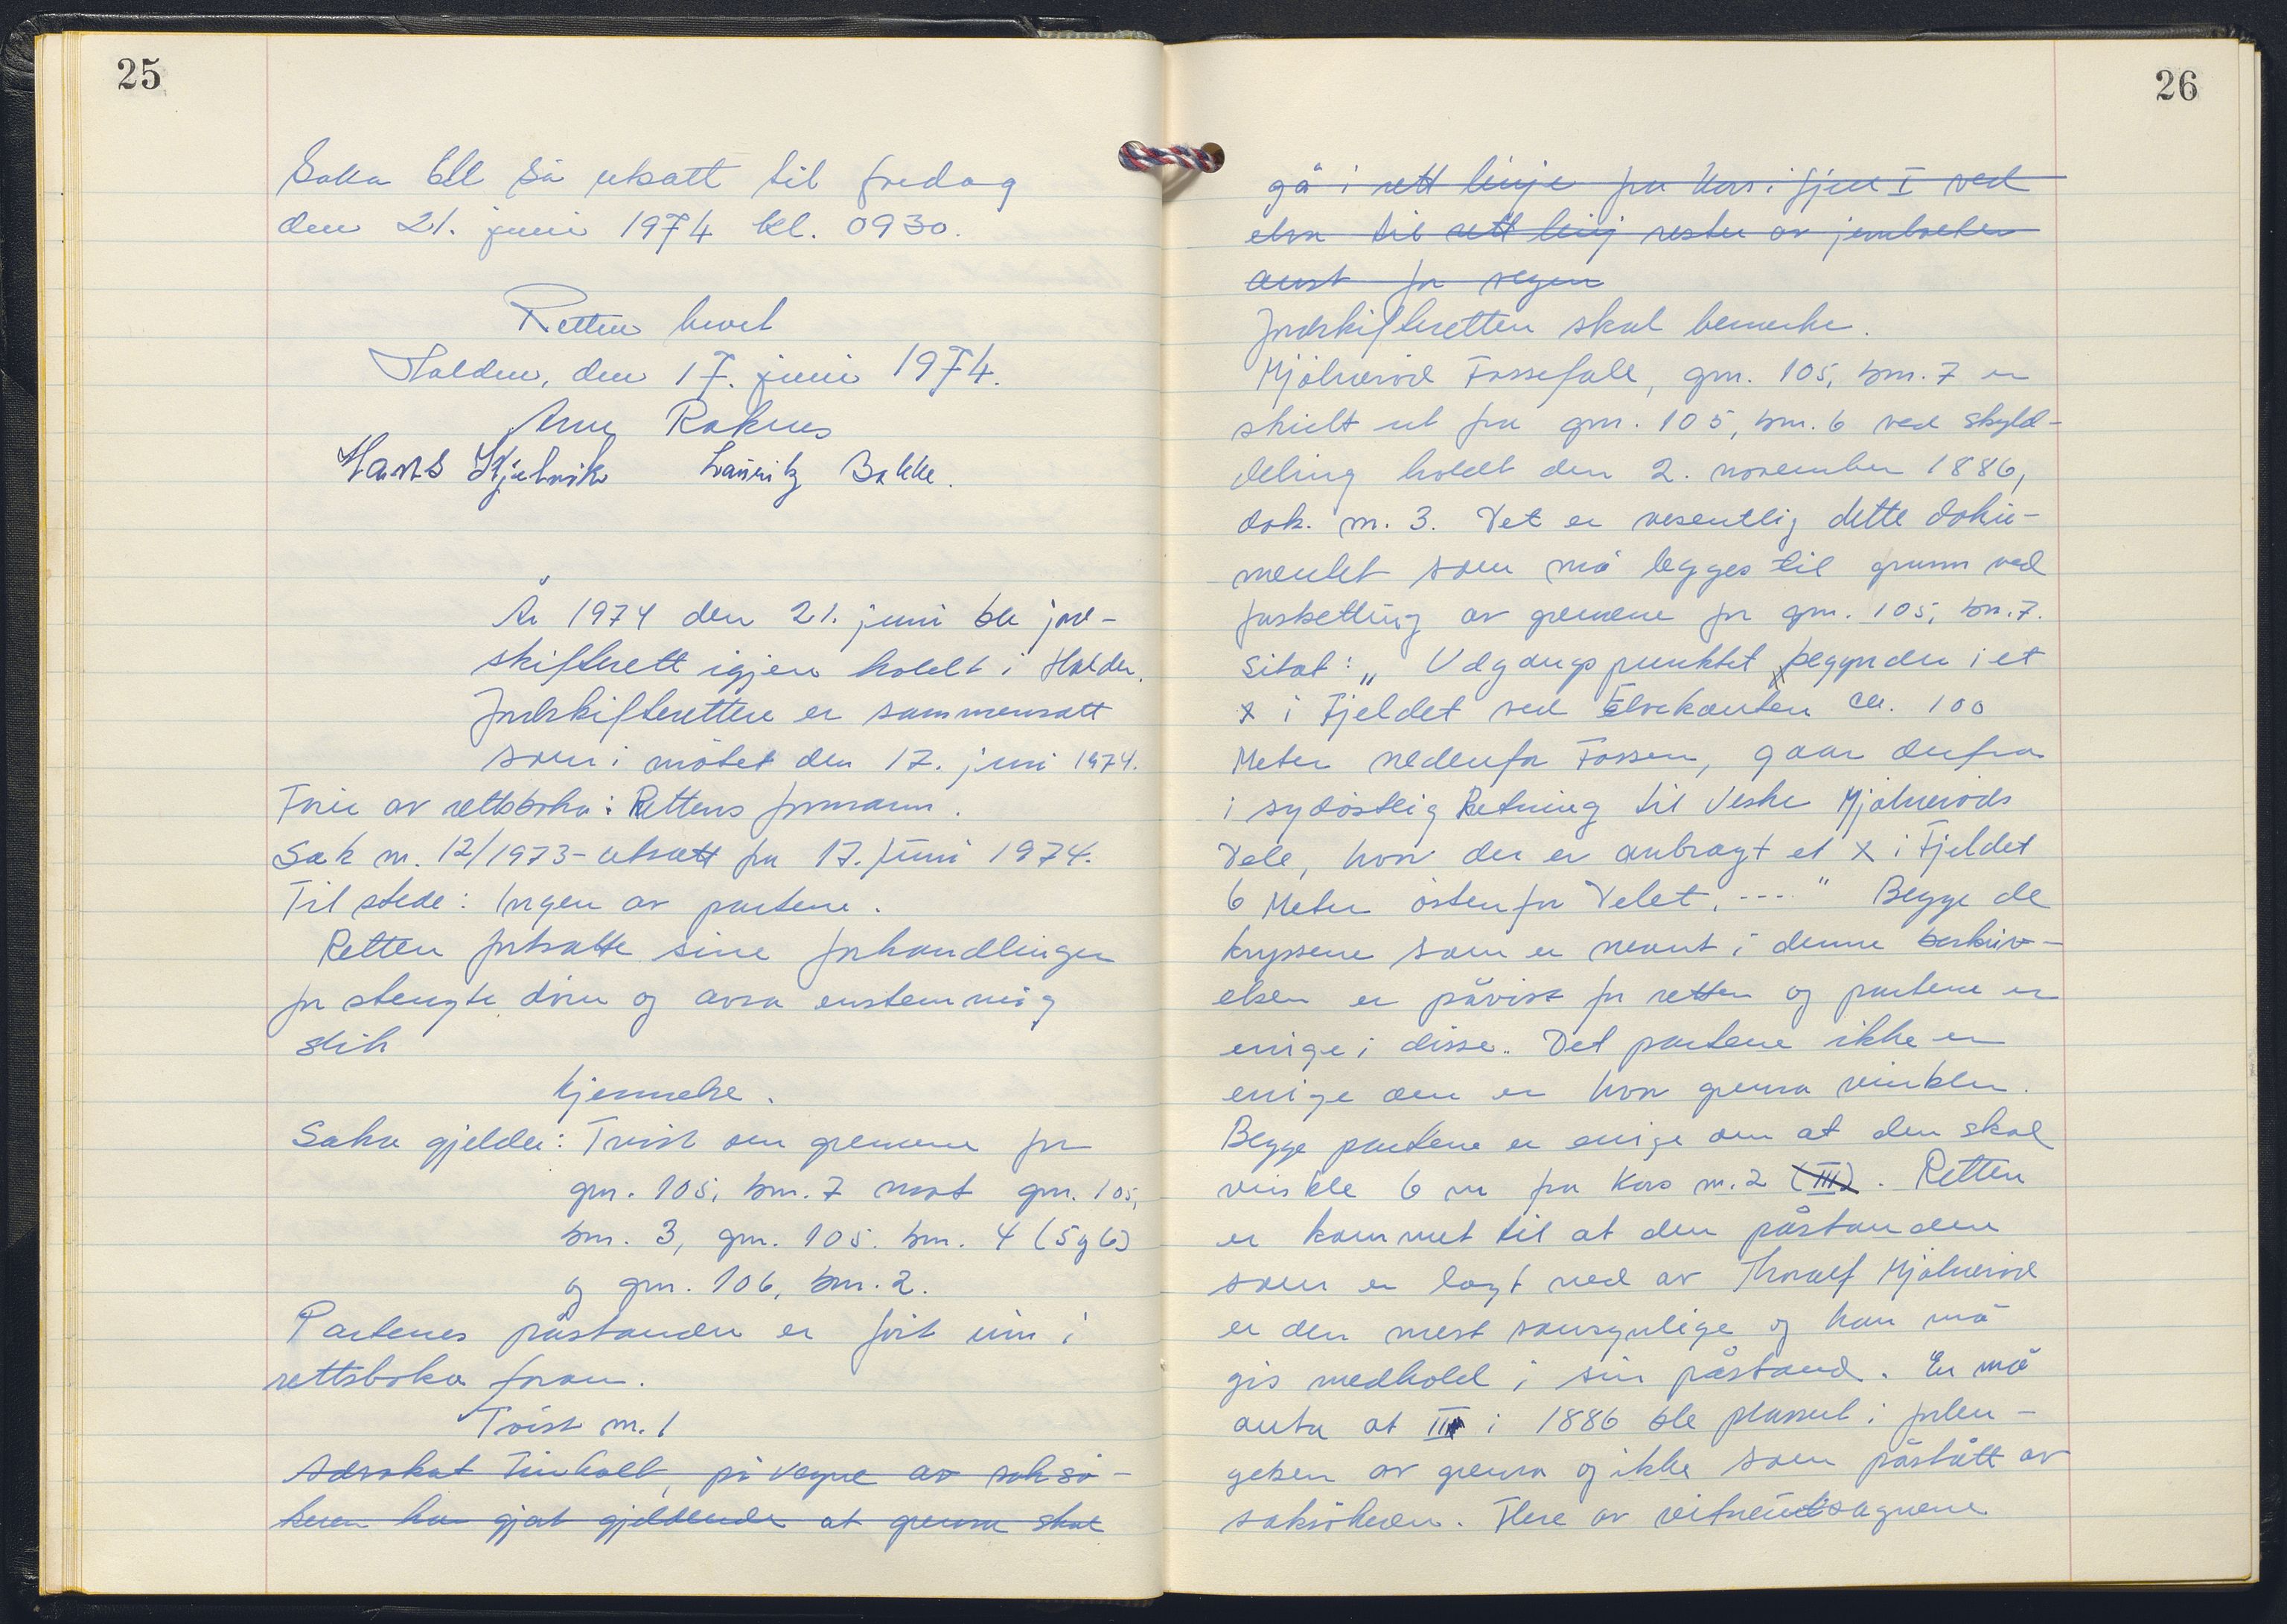 25
Saka ble så utsatt til fredag
den 21. juni 1974 kl. 0930.
Retten hevet
Halden, den 17. juni 1974.
Arne Raknes
Hans Kjølnvik Lauritz Bakke.
År 1974 den 21. juni ble jord-
skifterett igjen holdt i Halden.
Jordskifteretten er sammensatt
som i møtet den 17. juni 1974.
Fører av rettsboka: Rettens formann.
Sak nr. 12/1973 - utsatt fra 17. juni 1974.
Til stede: Ingen av partene.
Retten fortsatte sine forhandlinger
for stengte dører og avsa enstemmig
slik
kjennelse.
Saka gjelder: Tvist om grensene for
gnr. 105, bnr. 7 mot gnr. 105,
bnr. 3, gnr. 105. bnr. 4 (5 og 6)
og gnr. 106, bnr. 2.
Partenes påstander er ført inn i
rettsboka foran.
Tvist nr. 1
Advokat på vegne av saksø-
keren har gjort gjeldende at grensa skal
26
gå i rett linje fra kors i fjell I ved
elva til rett linj rester av jernbolten
aust for vegen
Jordskifteretten skal bemerke.
Mjølnerød Fossefall, gnr. 105, bnr. 7 er
skilt ut fra gnr. 105, bnr. 6 ved skyld-
deling holdt den 2. november 1886,
dok. nr. 3. Det er vesentlig dette doku-
mentet som må legges til grunn ved
fastsetting av grensene for gnr. 105, bnr. 7.
Sitat: „ Udgangspunktet begynder i et
x i Fjeldet ved Elvekanten ca. 100
Meter nedenfor Fossen, gaar derfra
i sydøstlig Retning til Vestre Mjølnerøds
Dele, hvor der er anbragt et x i Fjeldet
6 Meter østenfor Delet. ---- " Begge de
kryssene som er nevnt i denne beskriv-
elsen er påvist for retten og partene er
enige i disse. Det partene ikke er
enige om er hvor grensa vinkler.
Begge partene er enige om at den skal
vinkle 6 m fra kors nr. 2 (III). Retten
er kommet til at den påstanden
som er lagt ned av Thoralf Mjølnerød
er den mest sansynlige og han må
gis medhold i sin påstand. En må
anta at II i 1886 ble plassert i forlen-
gelsen av grensa og ikke som påstått av
saksøkeren. Flere av vitneutsagnene